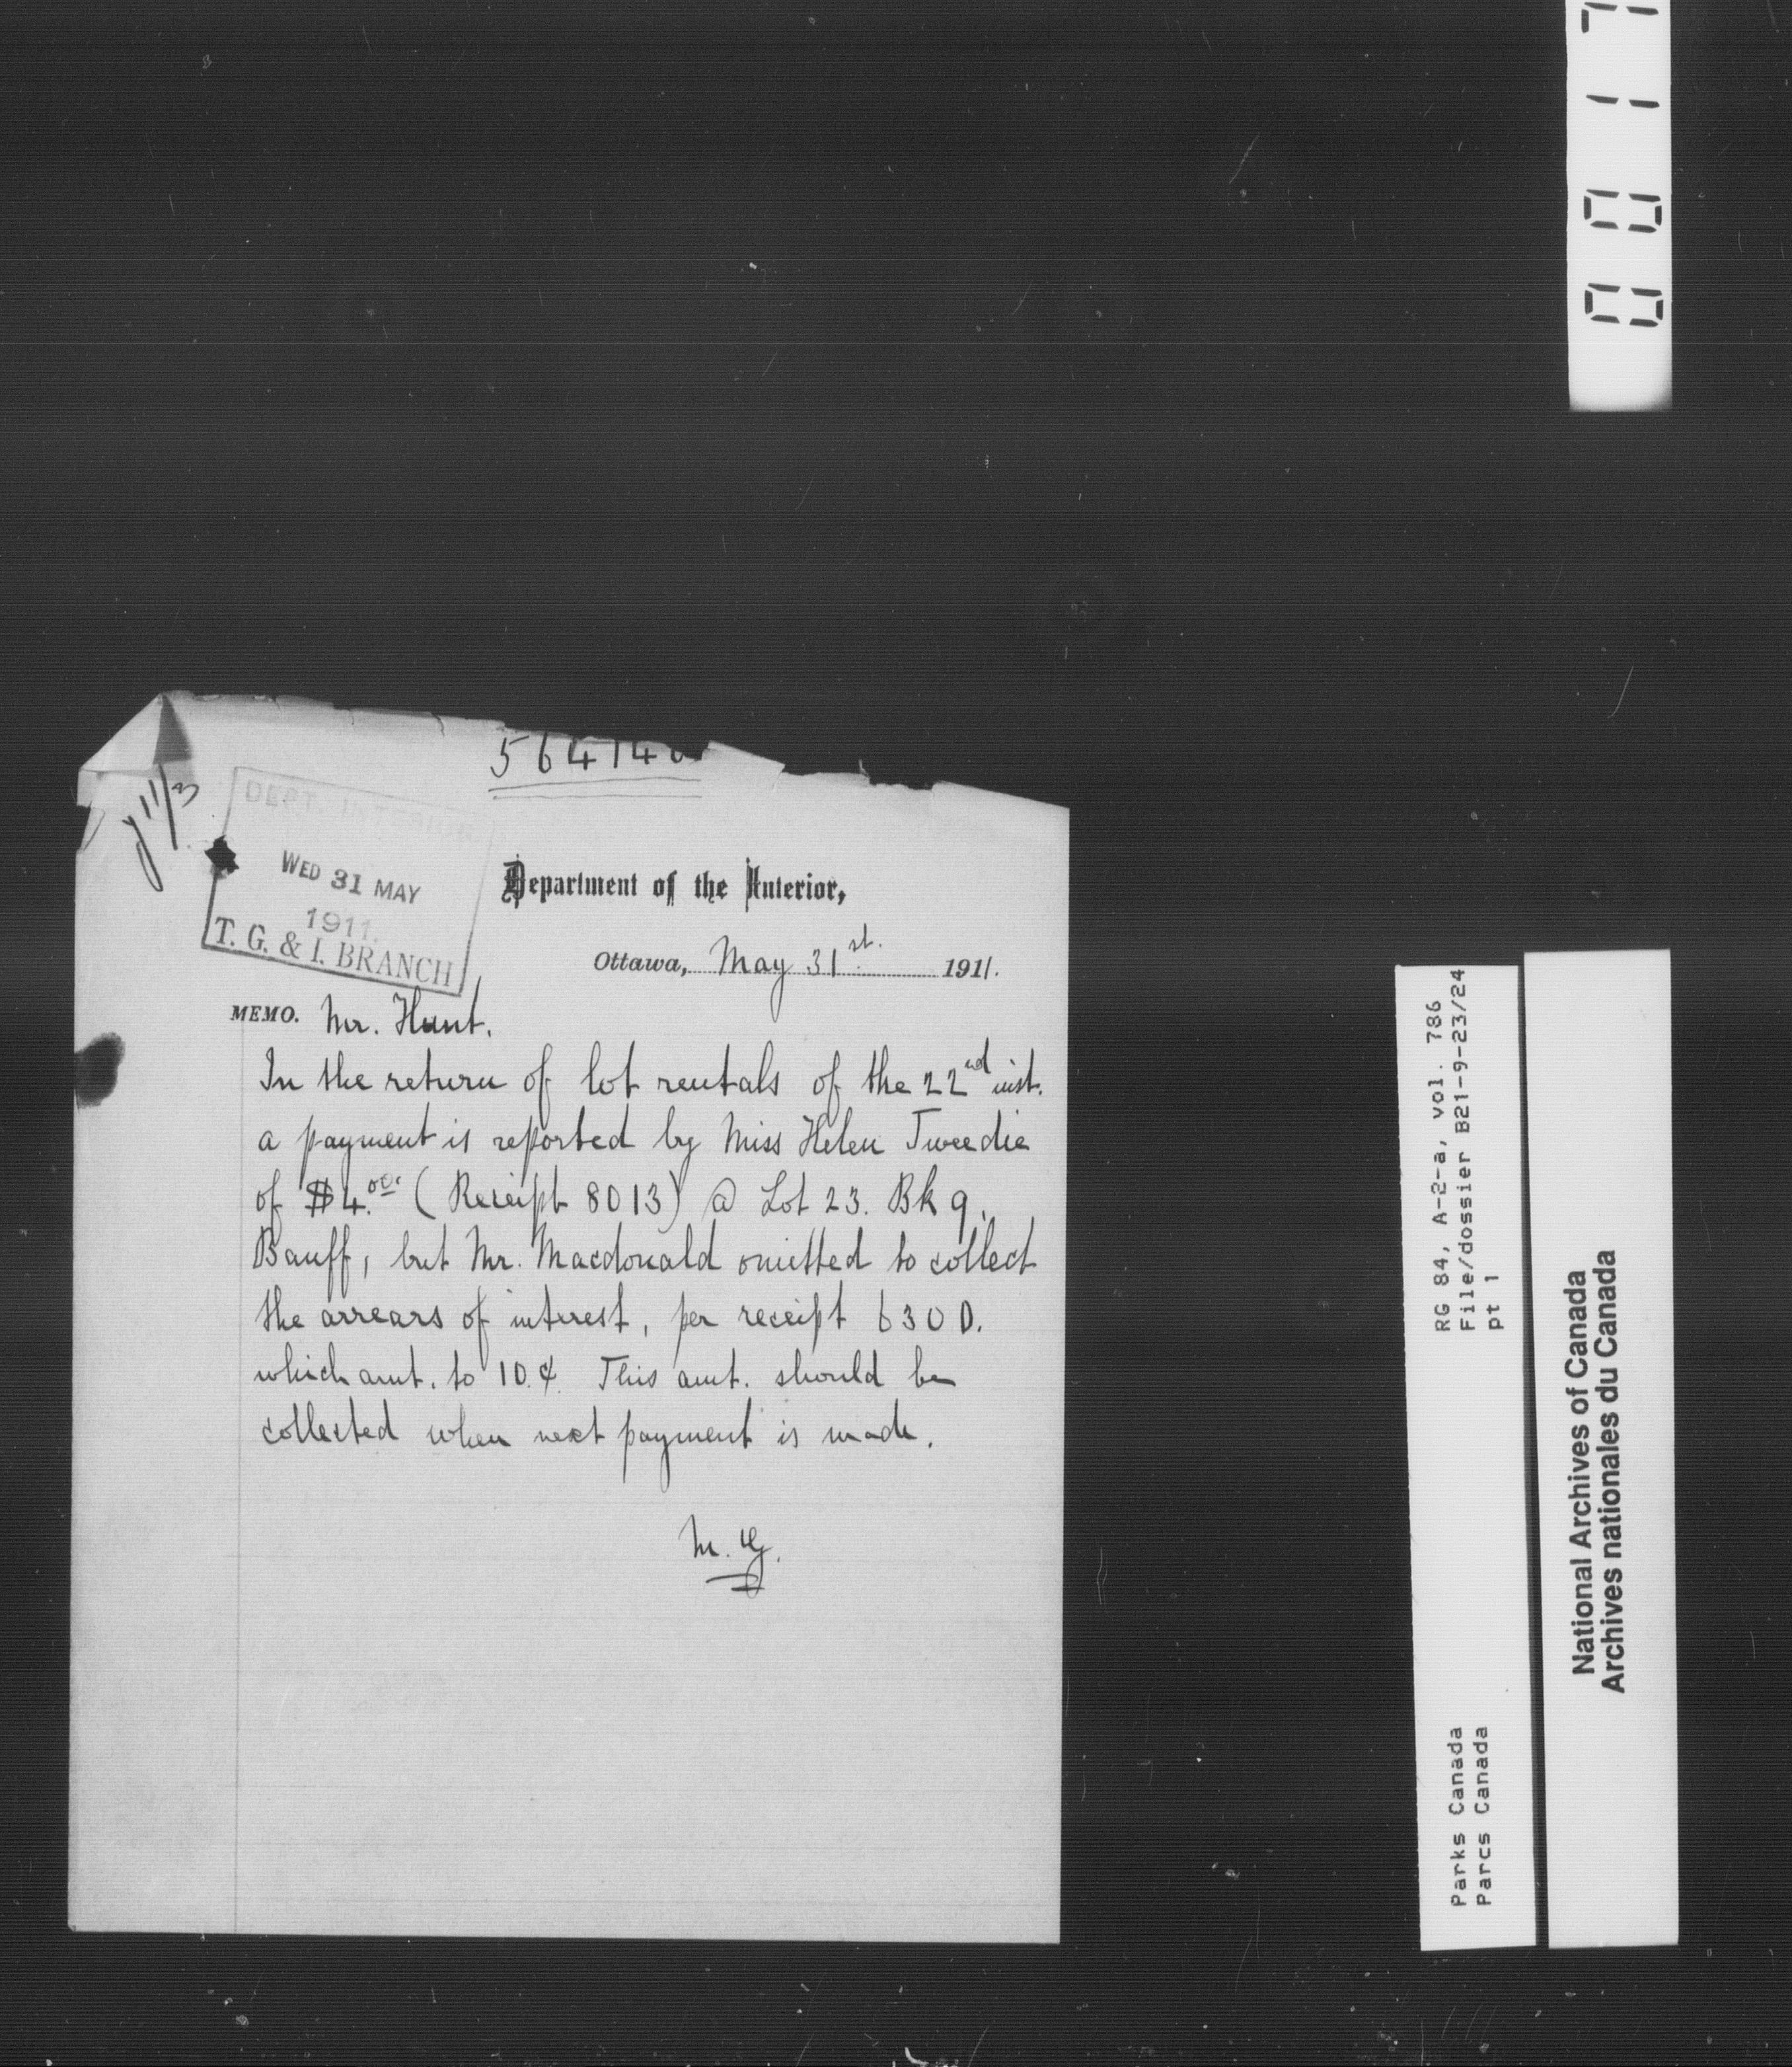 0017
564146
DEPT. INTERIOR
WED 31 MAY
1911.
T. G. & I. BRANCH
Department of the Interior,
Ottawa, May 31st. 1911.
MEMO. Mr. Hunt.
In the return of lot rentals of the 22nd inst.
a payment is reported by Miss Helen Tweedie
of $4.00. (Receipt 8013) @ Lot 23. Bk 9.
Banff, but Mr. Macdonald omitted to collect
the arrears of interest, per receipt 6300.
which amt. to 10.¢. This amt. should be
collected when next payment is made.
RG 84, A-2-a, vol. 786
File/dossier B21-9-23/24
pt 1
Parks Canada
Parcs Canada
National Archives of Canada
Archives nationales du Canada